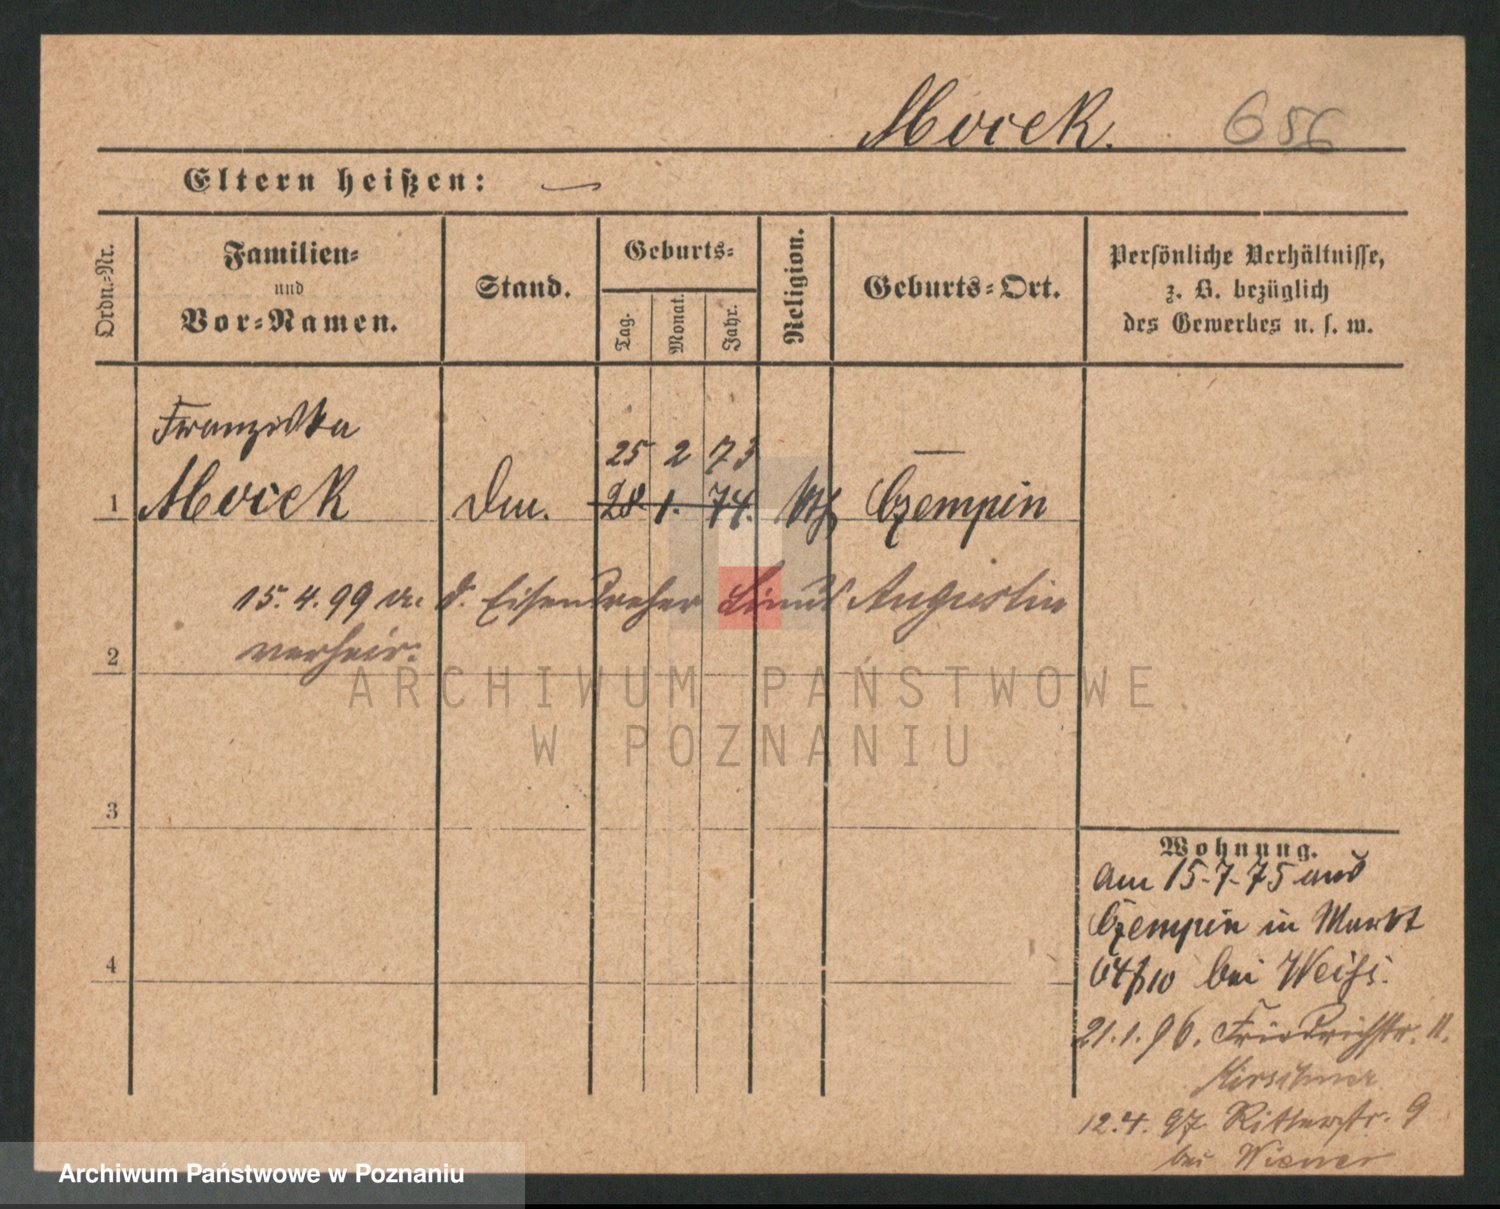 Mocek. 656
Eltern heißen: —
Ordn.-Nr.
Familien-
und
Vor-Namen.
Stand.
Geburts-
Tag.
Monat.
Jahr.
Religion.
Geburts-Ort.
Persönliche Verhältnisse,
z. B. bezüglich
des Gewerbes u. s. w.
Franziska
25 2 73 —
1 Mocek 28. 1. 74. kth Czempin
15. 4. 99 d. Eisendreher Linus Augustin
2 verheir.
3
4
Wohnung.
am 15-7- aus
Czempin in Markt
bei Weiss.
21.1.96. Friedrichstr. 11.
Kirschner
12.4.97 Ritterstr. 9
bei Wiener
ARCHIWUM PAŃSTWOWE
W POZNANIU
Archiwum Państwowe w Poznaniu